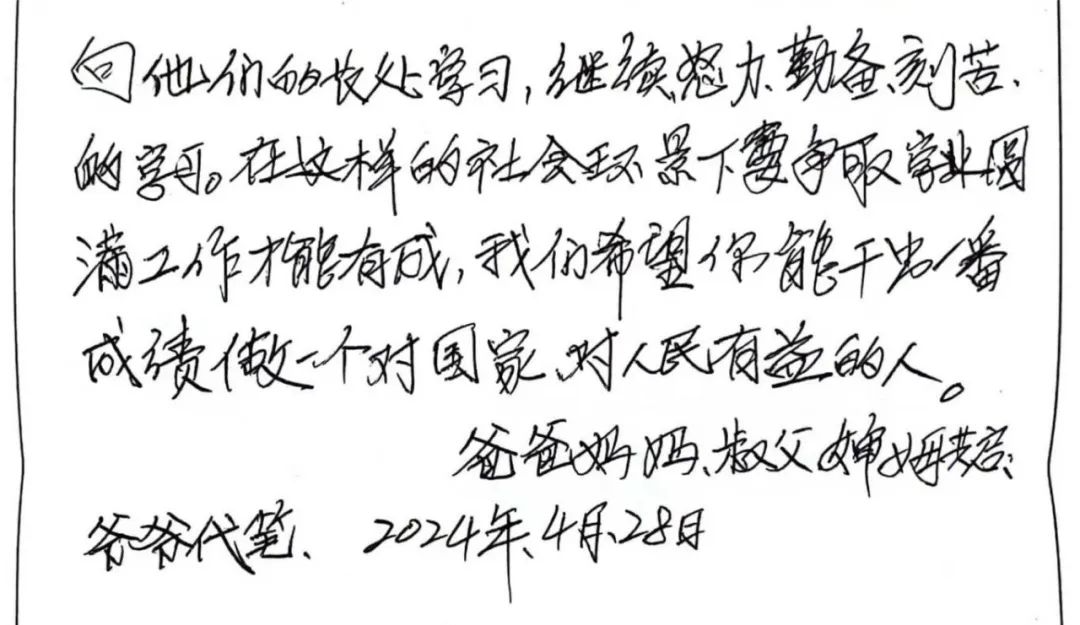 向他们的长处学习，继续努力、勤备、刻苦、
的学习。在这样的社会环景下要争取学业圆
满工作才能有成，我们希望你能干出一番
成绩做一个对国家、对人民有益的人。
爸爸妈妈、叔父婶姆共启、
爷爷代笔、 2024年、4月、28日